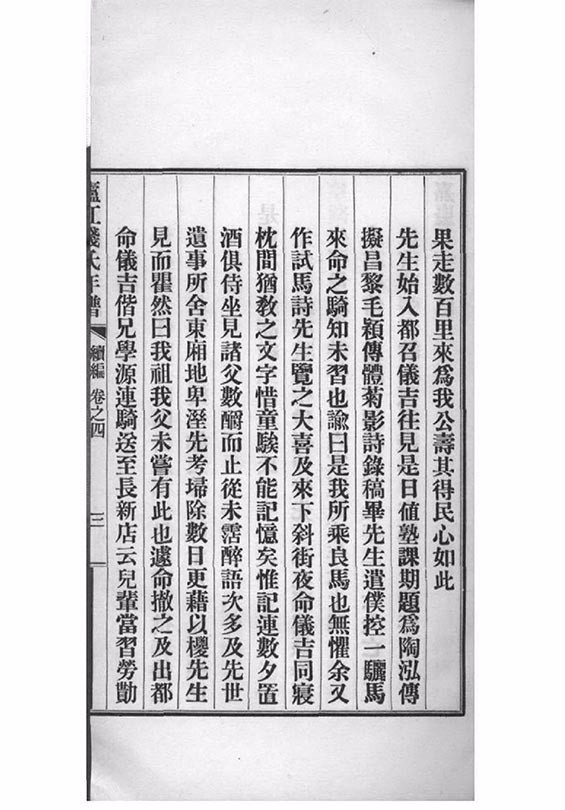 果走數百里來爲我公壽其得民心如此
先生始入都召儀吉往見是日値塾課期題爲陶泓傳
擬昌黎毛穎傳體菊影詩錄稿畢先生遣僕控一驪馬
來命之騎知未習也諭曰是我所乘良馬也無懼余又
作試馬詩先生覽之大喜及來下斜街夜命儀吉同寢
枕間猶敎之文字惜童騃不能記憶矣惟記連數夕置
酒俱侍坐見諸父數酹而止從未霑醉語次多及先世
遺事所舍東廂地卑溼先考埽除數日更藉以㮨先生
見而瞿然曰我祖我父未嘗有此也遽命撤之及出都
命儀吉偕兄學源連騎送至長新店云兒輩當習勞勩
廬江錢氏年譜 續編 卷之四 三